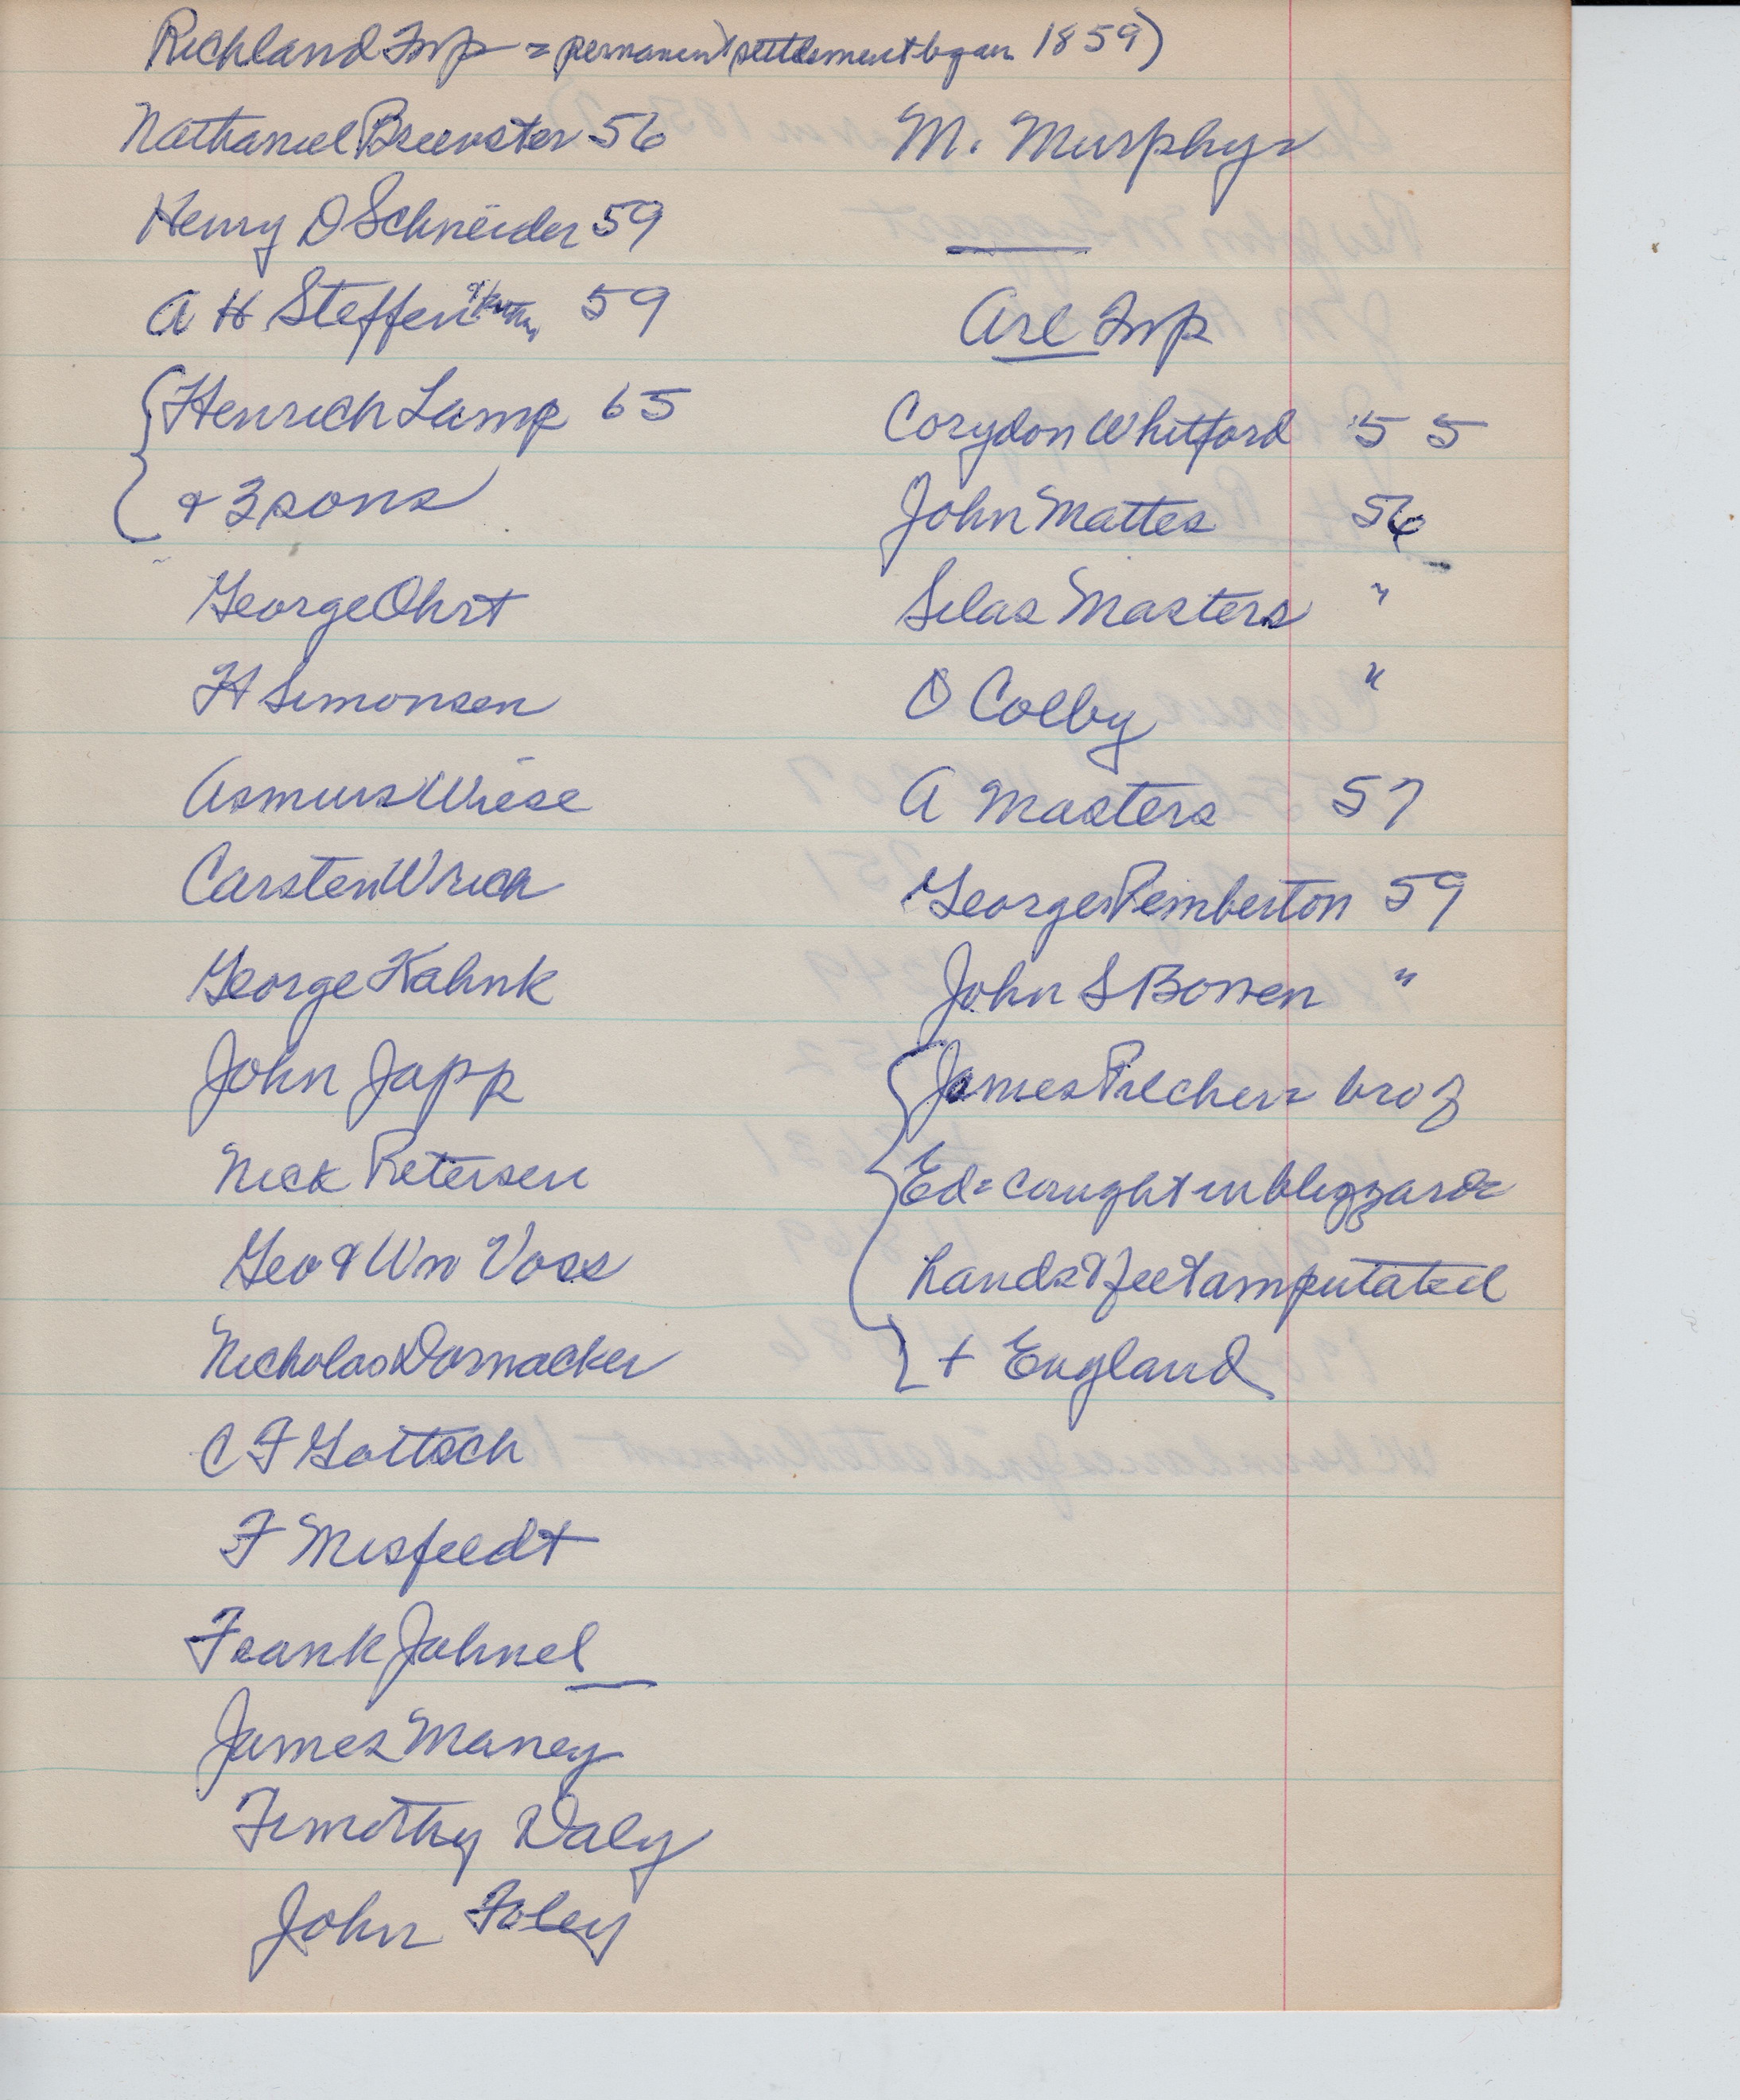 Richland Twp = permanent settlement began 1859)
Nathaniel Brewster 56
Henry D Schneider 59
A H Steffen 59
Henrich Lamp 65
& 3 sons
George Ohrt
H Simonsen
Asmus Wiese
Carsten Wrich
George Kahnk
John Japp
Nick Petersen
Geo & Wm Voss
Nicholas Dornacker
C F Gottsch
F Misfeldt
Frank Jahnel
James Maney
Timothy Daly
John Foley
M. Murphy
Arl Twp
Corydon Whitford 55
John Mattes 56
Silas Masters "
O Colby "
A Masters 57
George Pemberton 59
John S Bowen "
James Pilcher = bro of
Ed = caught in blizzard =
hands & feet amputated
+ England